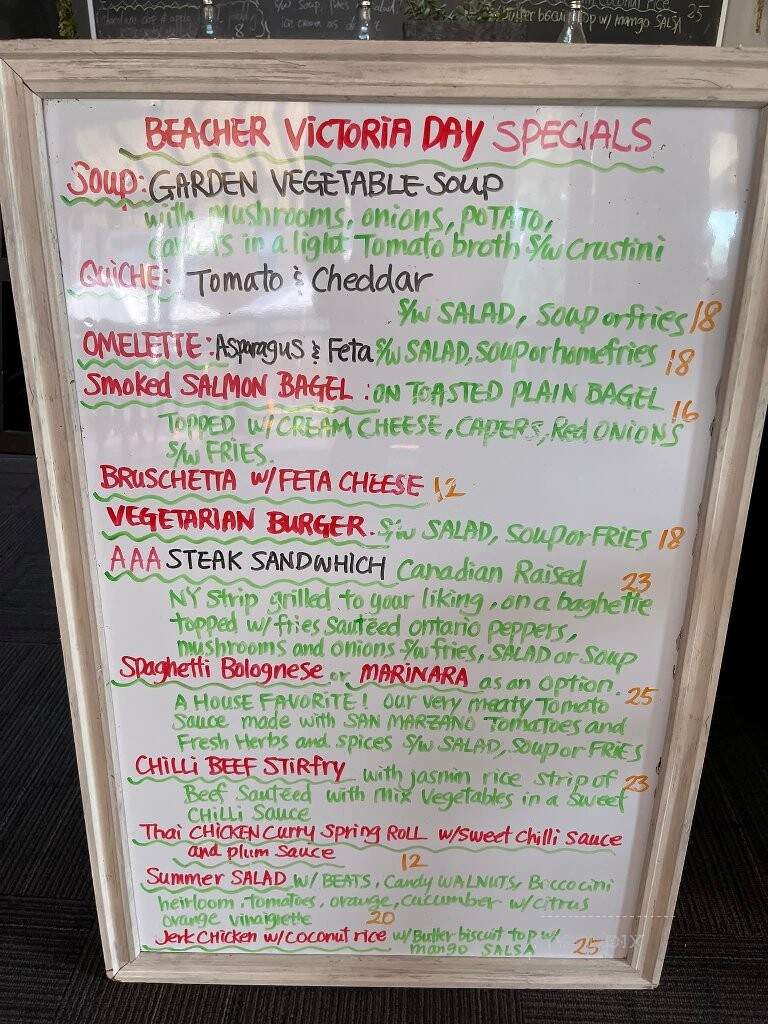 S/w Soup, fries, salad
8
ice cream as
Coconut rice
Butter biscuit top w/ mango SALSA 25
BEACHER VICTORIA DAY SPECIALS
Soup: GARDEN VEGETABLE SOUP
with mushrooms, onions, POTATO,
carrots in a light Tomato broth S/w Crustini
QUICHE: Tomato & Cheddar
S/w SALAD, Soup or fries 18
OMELETTE: Asparagus & Feta S/w SALAD, Soup or homefries 18
Smoked SALMON BAGEL: ON TOASTED PLAIN BAGEL 16
TOPPED W/CREAM CHEESE, CAPERS, Red ONIONS
S/w FRIES.
BRUSCHETTA W/FETA CHEESE 12
VEGETARIAN BURGER. S/w SALAD, Soup or FRIES 18
AAA STEAK SANDWHICH Canadian Raised 23
NY Strip grilled to your liking, on a baghette
topped w/fries Sautéed ontario peppers,
mushrooms and onions S/w fries, SALAD or Soup
Spaghetti Bolognese or MARINARA as an option. 25
A HOUSE FAVORITE! our very meaty Tomato
Sauce made with SAN MARZANO Tomatoes and
Fresh Herbs and spices S/w SALAD, Soup or FRIES
CHILLI BEEF STIRfry with jasmin rice strip of 23
Beef Sautéed with mix vegetables in a Sweet
CHILLI Sauce
Thai CHICKEN Curry Spring ROLL w/Sweet Chilli Sauce
and plum Sauce 12
Summer SALAD w/ BEATS, Candy WALNUTS, Boccocini
heirloom, Tomatoes, orange, cucumber w/citrus
orange vinaigrette 20
Jerk CHICKEN w/COCONUT rice w/Butter biscuit top w/
mango SALSA 25